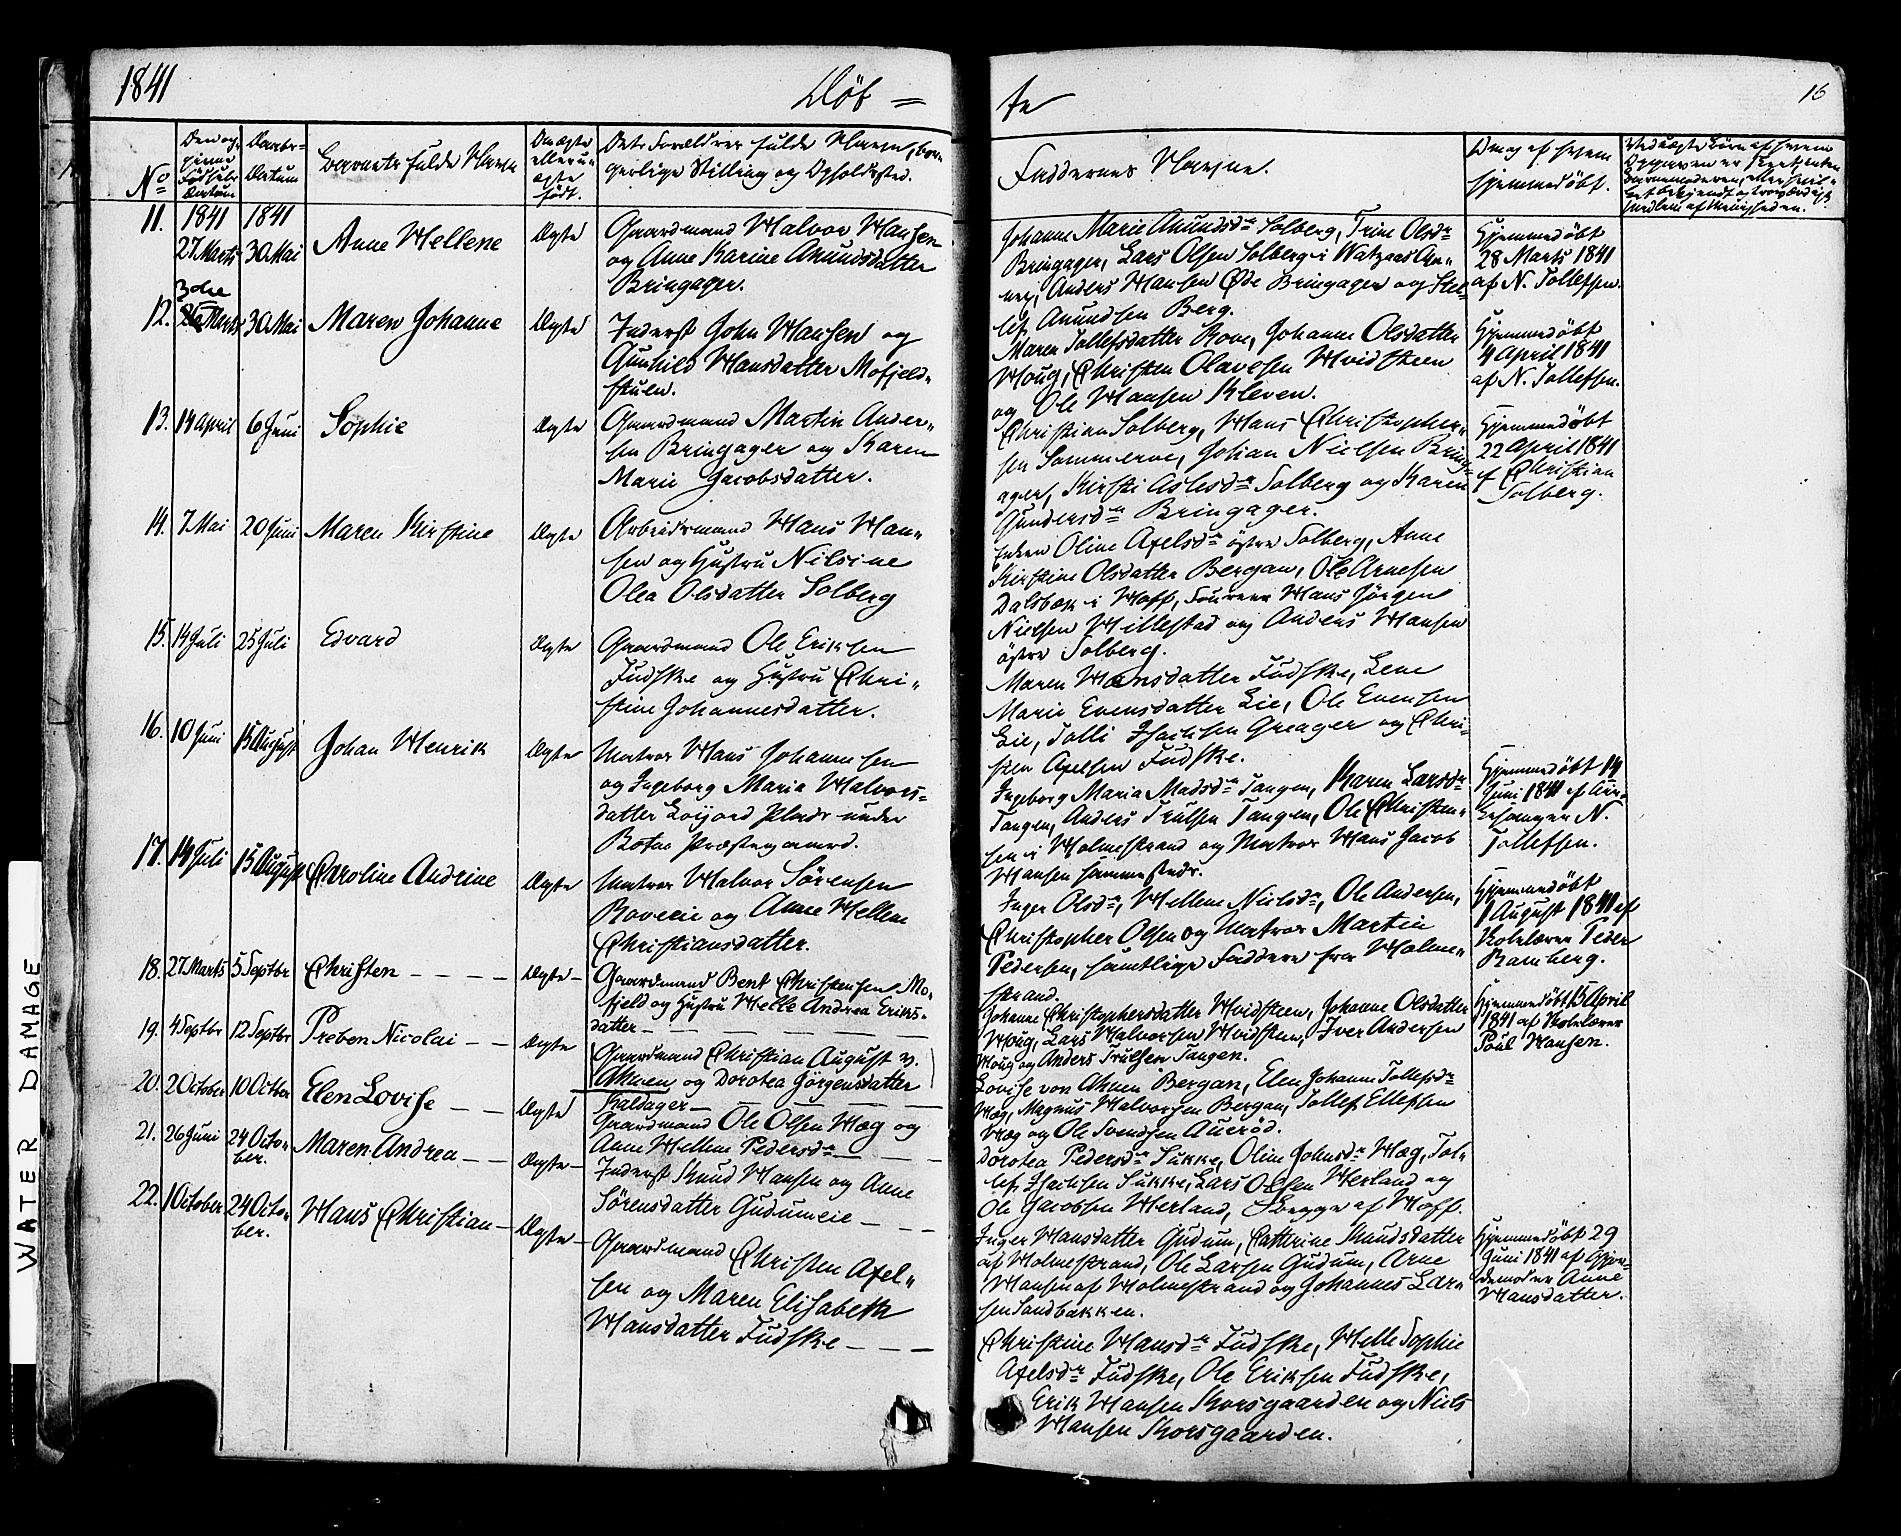 1841
Döb =
te
16
No
Den og
Fødsels
Datum
Daabs-
Datum
Barnets fulde Navn
Om ægte
eller u-
ægte
født.
Det Forældres fulde Navn, bor-
gerlige Stilling og Opholdssted.
Faddernes Navne.
Om og af hvem
hjemmedöbt.
11.
1841
1841
27 Marts
30 Mai
Anne Hellene
Ægte
Gaardmand Halvor Hansen
og Anne Karine Amundsdatter
Bringager.
Johanne Marie Amundsdr Solberg, Trine Olsdr
Bringager, Lars Olsen Solberg i
Anders Hansen Øde Bringager og
Amundsen Berg.
Hjemmedöbt
28 Marts 1841
af N. Tollefsen.
12.
3die
Marts
30 Mai
Maren Johanne
Ægte
Inderst John Hansen og
Gunhild Hansdatter Mofjeld-
stuen.
Maren Tollefsdatter Rove, Johanne Olsdatter
Houg, Christen Olavesen Hvidsteen
og Ole Hansen Kleven.
Hjemmedöbt
4 April 1841
af N. Tollefsen.
13.
14 April
6 Juni
Sophie
Ægte
Gaardmand Martin Ander-
sen Bringager og Karen
Marie Jacobsdatter.
Christian Solberg, Hans Christopher-
sen Sommeroe, Johan Nielsen Bring-
ager, Kirsti Aslesdr Solberg og Karen
Gundersdr Bringager.
Hjemmedöbt
22 April 1841
af Christian
Solberg.
14.
7 Mai
20 Juni
Maren Kirstine
Ægte
Arbeidsmand Hans Han-
sen og Hustru Nilsine
Olea Olsdatter Solberg
Enken Oline Axelsdr östre Solberg, Anne
Kirstine Olsdatter Bergan, Ole Arnesen
Dalsbæk i Hoff, Hans Jörgen
Nielsen Hillestad og Anders Hansen
östre Solberg.
15.
14 Juli
25 Juli
Edvard
Ægte
Gaardmand Ole Eriksen
Fudske og Hustru Chri-
stine Johannesdatter.
Maren Hansdatter Fudske, Lene
Marie Evensdatter Lie, Ole Evensen
Lie, Tolli Isachsen Greager og Chri-
sten Axelsen Fudske.
16.
10 Juni
15 August
Johan Henrik
Ægte
Matros Hans Johannesen
og Ingeborg Maria Halvors-
datter Plads under
Botne Præstegaard.
Ingeborg Maria Madsdr Tangen, Karen Larsdr
Tangen, Anders Trulsen Tangen, Ole Christen-
sen i Holmestrand og Matros Hans Jacob
Hansen sammesteds.
Hjemmedöbt 14
Juni 1841 af Kir-
kesanger N.
Tollefsen.
17.
14 Juli
15 August
Caroline Andrine
Ægte
Matros Halvor Sörensen
Roveeie og Anne Hellene
Christiansdatter.
Inger Olsdr, Hellene Nielsdr, Ole Andersen,
Christopher Olsen og Matros Martin
Pedersen, samtlige Faddere fra Holme-
strand.
Hjemmedöbt
1 August 1841 af
Skolelærer Peder
Ramberg.
18.
27 Marts
5 Septbr
Christen
Ægte
Gaardmand Bent Christensen Mo-
fjeld og Hustru Helle Andrea Eriks-
datter
Johanne Christophersdatter Hvidsteen, Johanne Olsdatter
Houg, Lars Halvorsen Hvidsten, Iver Andersen
Houg og Anders Trulsen Tangen.
Hjemmedöbt 15 April
1841 af Skolelærer
Poul Hansen.
19.
4 Septbr
12 Septbr
Preben Nicolai
Ægte
Gaardmand Christian August v.
Aknen og Dorotea Jörgensdatter
Haldager
Lovise von Aknen Bergan, Elen Johanne Tollefsdr
Hæg, Magnus Halvorsen Bergan, Tollef Ellefsen
Hæg og Ole Svendsen Aueröd.
20.
2 October
10 Octber
Elen Lovise
Ægte
Gaardmand Ole Olsen Hæg og
Anne Hellene Pedersdr
Dorotea Pedersdr Sukke, Oline Johnsdr Hæg, Tol-
lef Isachsen Sukke, Lars Olsen Herland og
Ole Jacobsen Herland, begge af Hoff.
21.
26 Juni
24 Octo-
ber.
Maren Andrea
Ægte
Inderst Knud Hansen og Anne
Sörensdatter Gudumeie
Inger Hansdatter Gudum, Cathrine Knudsdatter
af Holmestrand, Ole Larsen Gudum, Arne
Hansen af Holmestrand og Johannes Lar-
sen Sandbakken.
Hjemmedöbt 29
Juni 1841 af Gjor-
demoder Anne
Hansdatter.
22.
1 October
24 Octo-
ber.
Hans Christian
Ægte
Gaardmand Christen Axel-
sen og Maren Elisabeth
Hansdatter Fudske
Christine Hansdr Fudske, Helle Sophie
Axelsdr Fudske, Ole Eriksen Fudske,
Erik Hansen Korsgaarden og Niels
Hansen Korsgaarden.
WATER DAMAGE